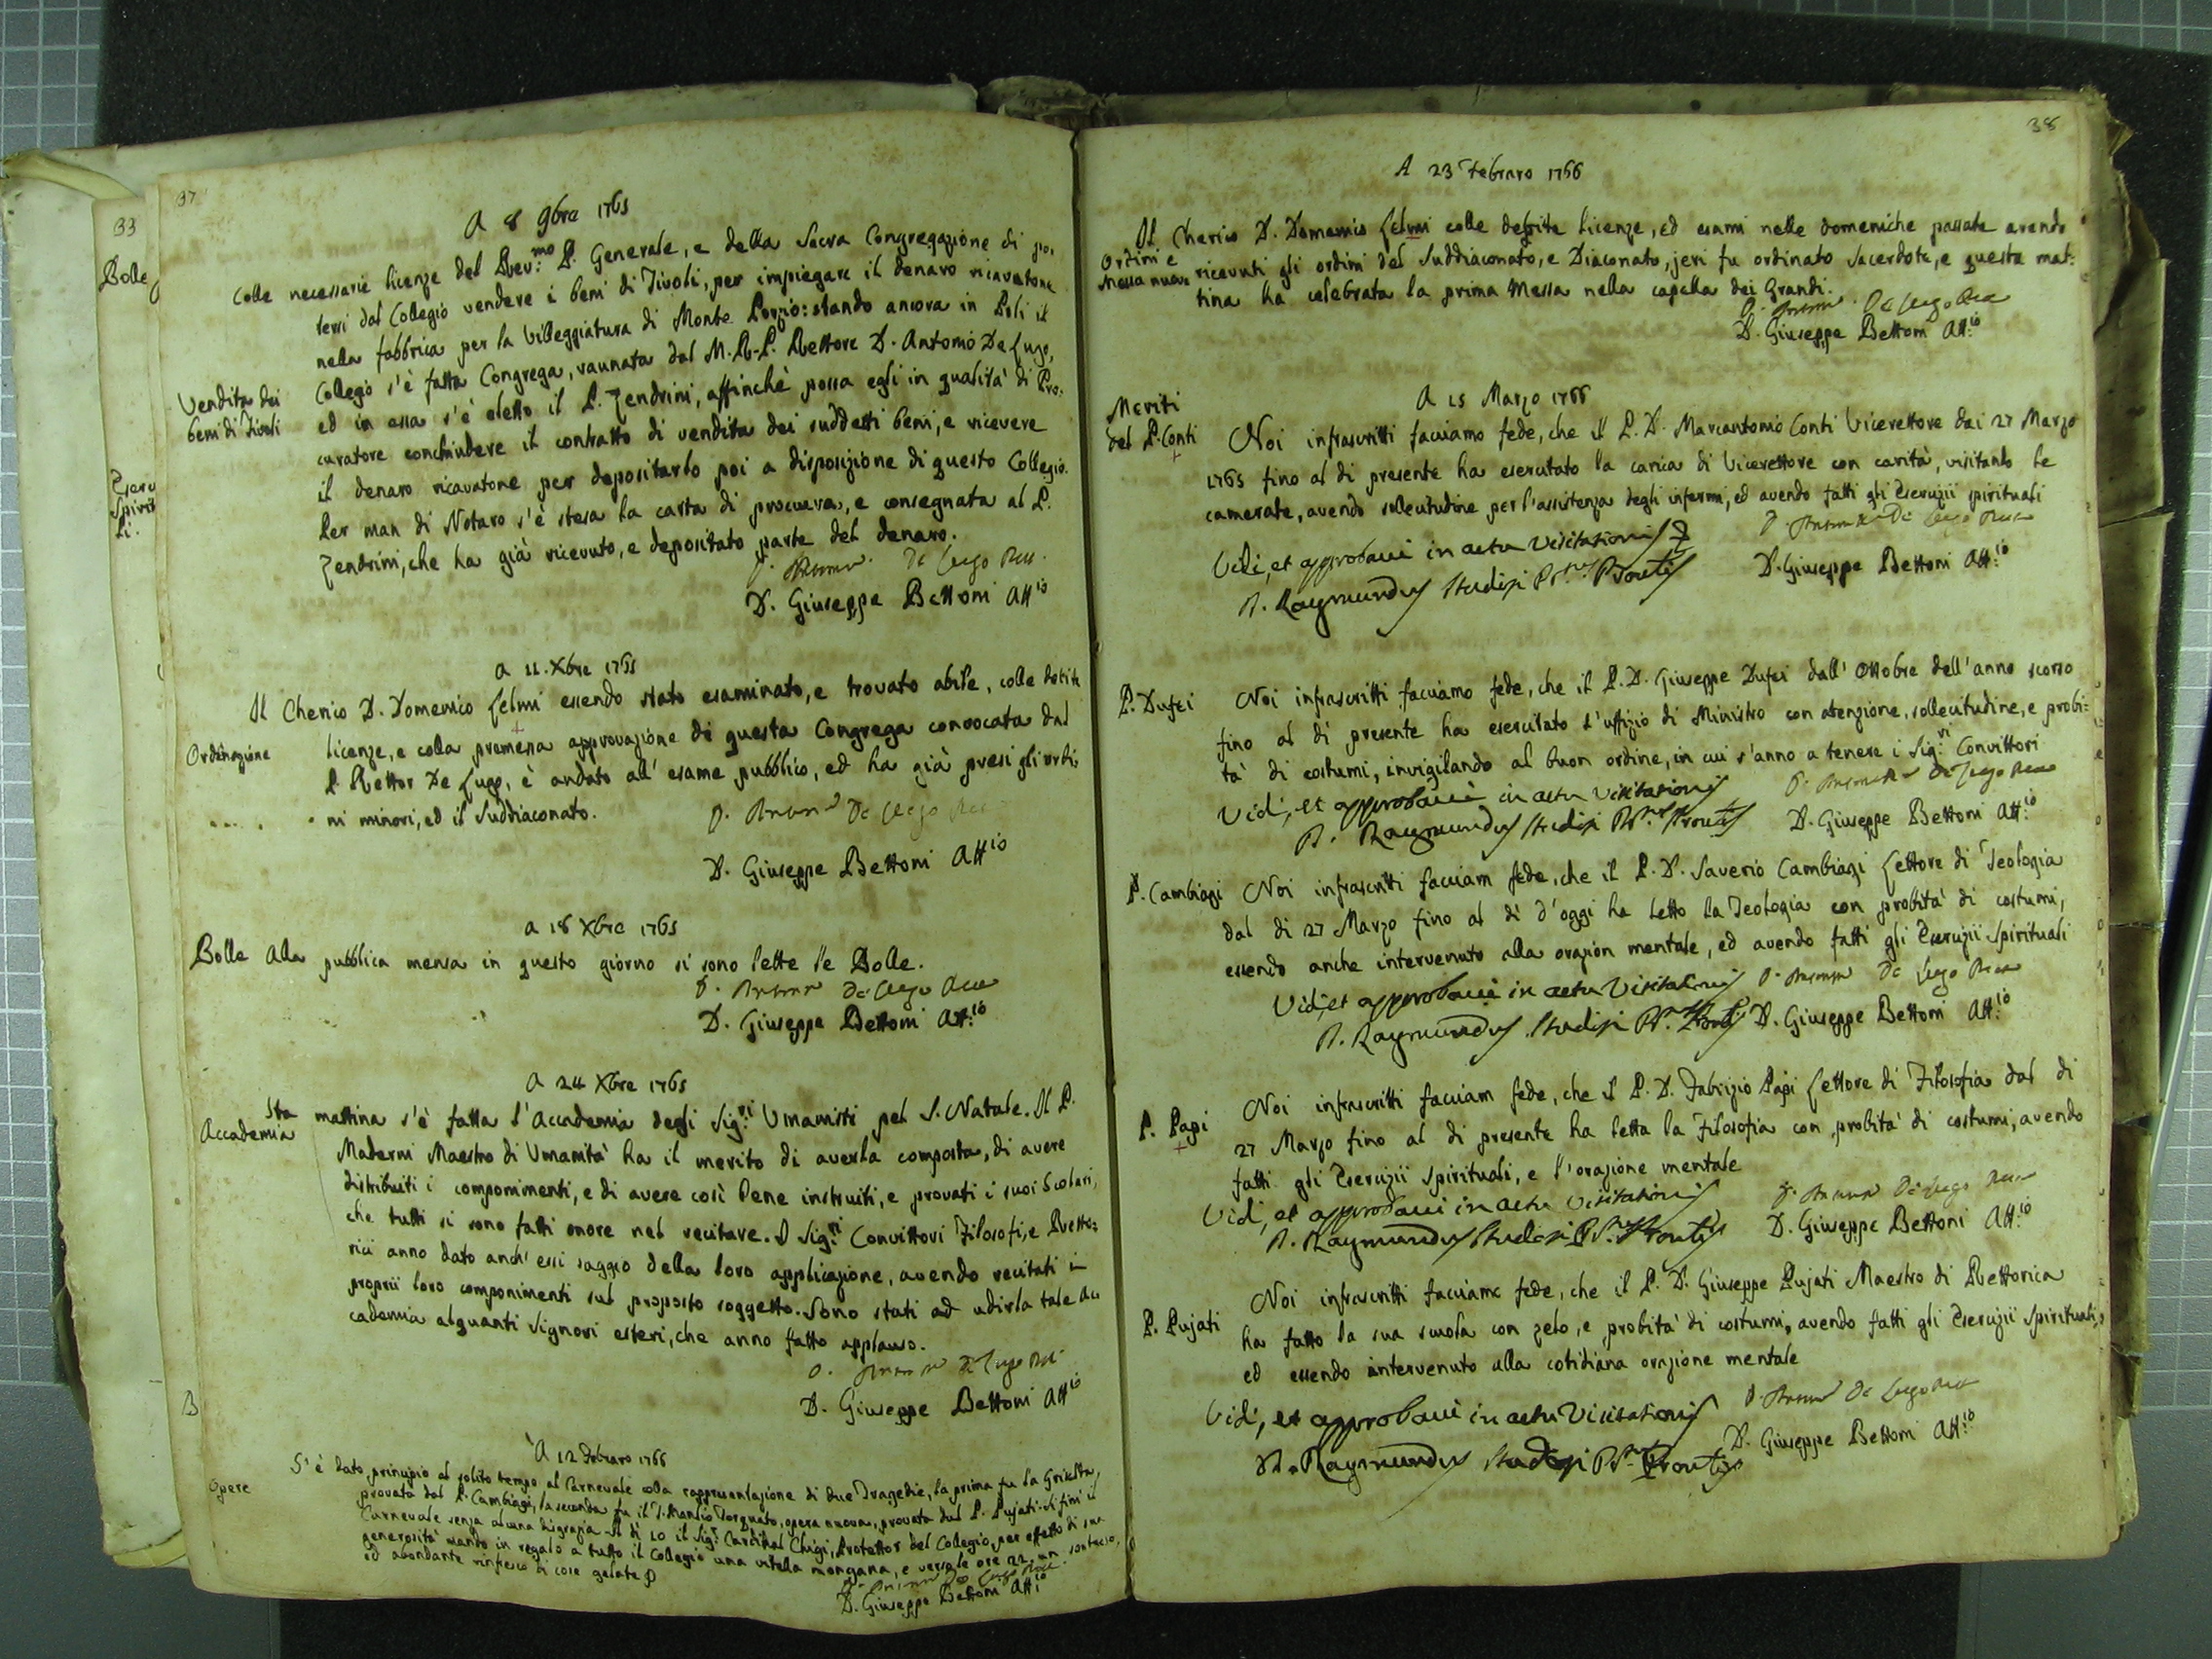 33
Bolle
37
A 8 9bre 1765
Colle necessarie licenze del Rev:mo P. Generale, e della Sacra Congregazione di po,
tersi dal Collegio vendere i beni di Tivoli, per impiegare il denaro ricavatone
nella fabbrica per la Villeggiatura di Monte Porzio: stando ancora in Poli il
Vendita dei
beni di Tivoli
Collegio s'è fatta Congrega, raunata dal M. R. P. Rettore D. Antonio De Lugo,
ed in essa s'è eletto il P. Zendrini, affinchè possa egli in qualità di Pro:
curatore conchiudere il contratto di vendita dei suddetti beni, e ricevere
il denaro ricavatone per depositarlo poi a disposizione di questo Collegio.
Per man di Notaro s'è stesa la carta di procura, e consegnata al P.
Zendrini, che ha già ricevuto, e depositato parte del denaro.
D. Antonio De Lugo Rett.
D. Giuseppe Bettoni Att.io
A 11. Xbre 1765
Il Cherico D. Domenico Celmi essendo stato esaminato, e trovato abile, colle debite
Ordinazione
licenze, e colla premessa approvazione di questa Congrega convocata dal
P. Rettor De Lugo, è andato all' esame pubblico, ed ha già presi gli ordi,
ni minori, ed il Suddiaconato.
D. Antonio De Lugo Rett
D. Giuseppe Bettoni Att.io
A 18 Xbre 1765
Bolle Alla pubblica mensa in questo giorno si sono lette le Bolle.
D. Antonio De Lugo Rett
D. Giuseppe Bettoni Att.io
A 24 Xbre 1765
Accademia
Sta mattina s'è fatta l'Accademia degli Sig:ri Umanisti pel S. Natale. Il P.
Maderni Maestro di Umanità ha il merito di averla composta, di avere
distribuiti i componimenti, e di avere così bene instruiti, e provati i suoi Scolari,
che tutti si sono fatti onore nel recitare. I Sig:ri Convittori Filosofi, e Retto:
rici anno dato anch' essi saggio della loro applicazione, avendo recitati i
proprii loro componimenti sul proposto soggetto. Sono stati ad udirla tale Ac
cademia alquanti Signori esteri, che anno fatto applauso.
D. Antonio De Lugo Rett
D. Giuseppe Bettoni Att.io
A 12 Febraro 1766
Opere
S'è dato principio al solito tempo al Carnevale colla rappresentazione di due Tragedie, la prima fu la Griselda,
provata dal P. Cambiagi, la seconda fu il T. Manlio Torquato, opera nuova, provata dal P. Pujati. Si finì il
Carnevale senza alcuna disgrazia. Il dì 10 il Sig:r Cardinal Chigi, Protettor del Collegio, per effetto di sua
generosità mandò in regalo a tutto il Collegio una vitella mongana, e verso le ore 22 un sontuoso,
ed abondante rinfresco di cose gelate
D. Antonio De Lugo Rett
D. Giuseppe Bettoni Att.io
38
A 23 Febraro 1766
Il Cherico D. Domenico Celmi colle debite licenze, ed esami nelle domeniche passate avendo
Ordini e
Messa nuova
ricevuti gli ordini del Suddiaconato, e Diaconato, jeri fu ordinato Sacerdote, e questa mat:
tina ha celebrata la prima Messa nella capella dei Grandi.
D. Antonio De Lugo Rett
D. Giuseppe Bettoni Att.io
A 15 Marzo 1766
Meriti
del P. Conti
Noi infrascritti facciamo fede, che il P. D. Marcantonio Conti Vicerettore dai 27 Marzo
1765 fino al dì presente ha esercitato la carica di Vicerettore con carità, visitando le
camerate, avendo sollecitudine per l'assistenza degli infermi, ed avendo fatti gli Esercizii spirituali
D. Antonio De Lugo Rett
Vidi, et approbavi in actu Visitationis
D. Giuseppe Bettoni Att.io
D. Raymundus Studisi
P. Dufei
Noi infrascritti facciamo fede, che il P. D. Giuseppe Dufei dall' Ottobre dell'anno scorso
fino al dì presente ha esercitato l'uffizio di Ministro con atenzione, sollecitudine, e probi:
tà di costumi, invigilando al buon ordine, in cui s'anno a tenere i Sig:ri Convittori
Vidi, et approbavi in actu Visitationis
D. Antonio De Lugo Rett
D. Raymundus Studisi
D. Giuseppe Bettoni Att.io
P. Cambiagi
Noi infrascritti facciam fede, che il P. D. Saverio Cambiagi Lettore di Teologia
dal dì 27 Marzo fino al dì d'oggi ha letto la Teologia con probità di costumi,
essendo anche intervenuto alla orazion mentale, ed avendo fatti gli Esercizii Spirituali
Vidi, et approbavi in actu Visitationis
D. Antonio De Lugo Rett
D. Raymundus Studisi
D. Giuseppe Bettoni Att.io
P. Papi
Noi infrascritti facciam fede, che il P. D. Fabrizio Papi Lettore di Filosofia dal dì
27 Marzo fino al dì presente ha letta la Filosofia con probità di costumi, avendo
fatti gli Esercizii Spirituali, e l'orazione mentale
Vidi, et approbavi in actu Visitationis
D. Antonio De Lugo Rett
D. Raymundus Studisi
D. Giuseppe Bettoni Att.io
P. Pujati
Noi infrascritti facciamo fede, che il P. D. Giuseppe Pujati Maestro di Rettorica
ha fatto la sua scuola con zelo, e probità di costumi, avendo fatti gli Esercizii Spirituali,
ed essendo intervenuto alla cotidiana orazione mentale
Vidi, et approbavi in actu Visitationis
D. Antonio De Lugo Rett
D. Raymundus Studisi
D. Giuseppe Bettoni Att.io